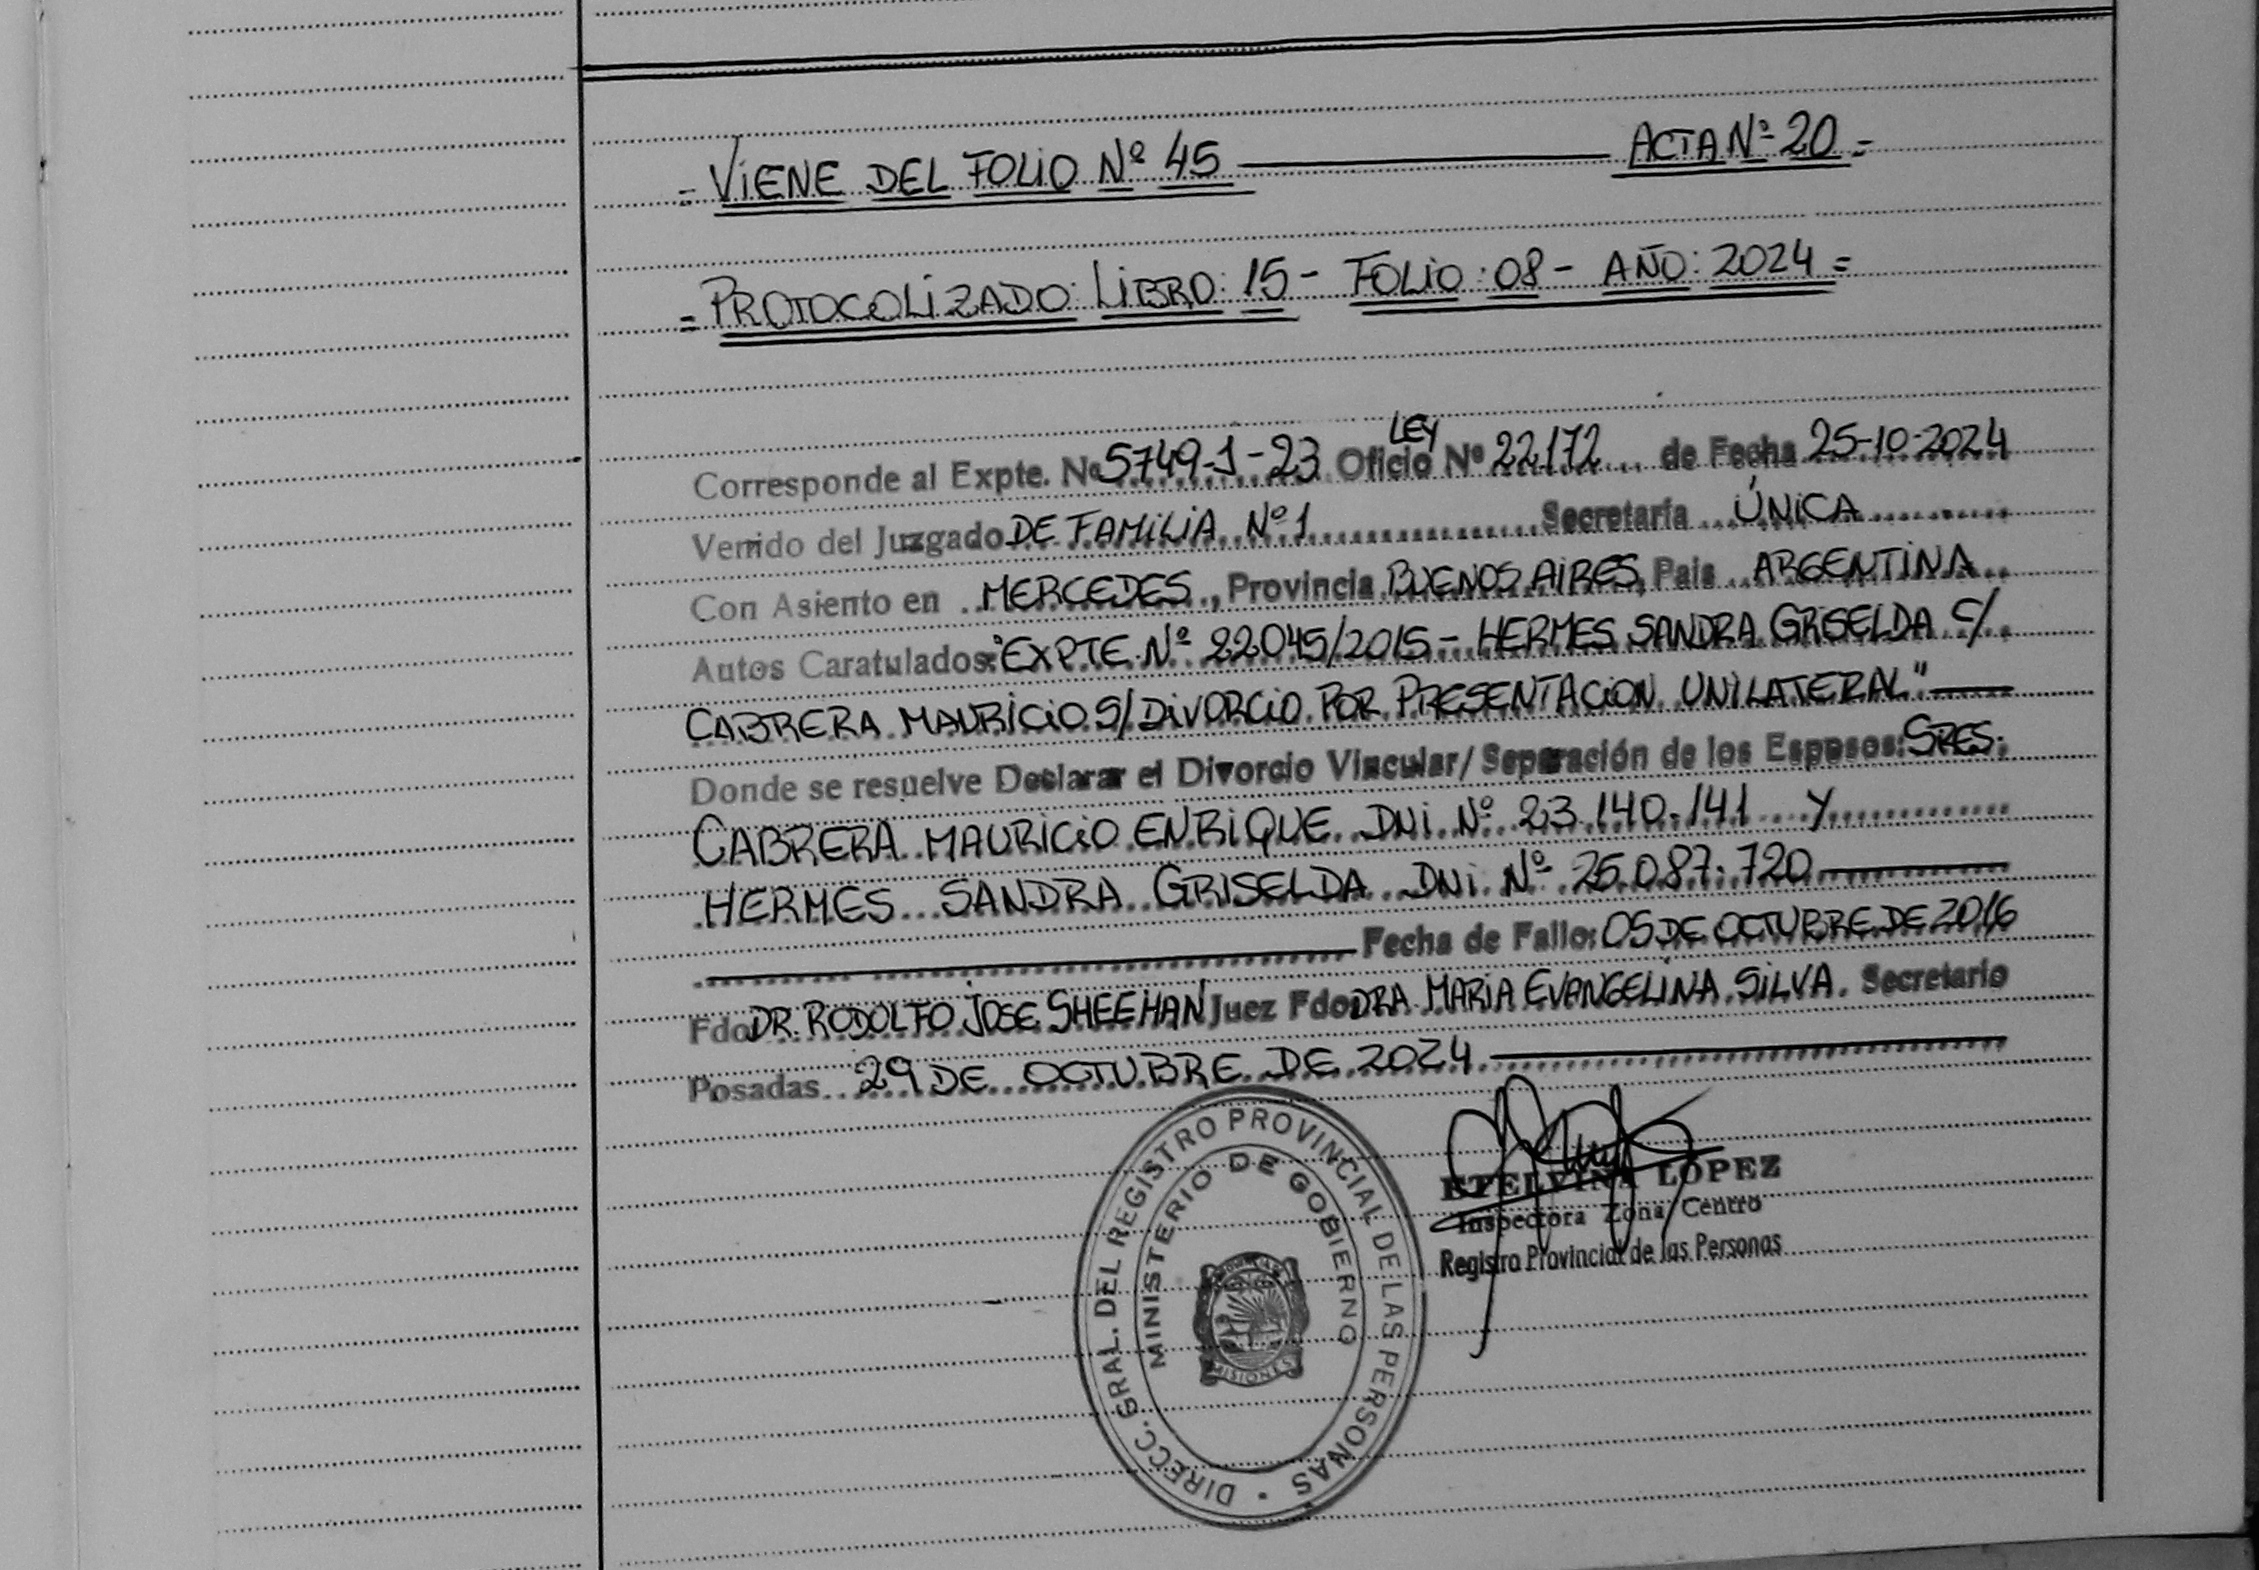 = VIENE DEL FOLIO Nº 45 ——— ACTA Nº 20 =
= PROTOCOLIZADO: LIBRO: 15 - FOLIO: 08 - AÑO: 2024 =
Corresponde al Expte. Nº 5749-1-23 Oficio LEY Nº 22172 de Fecha 25-10-2024
Venido del Juzgado DE FAMILIA Nº 1 Secretaría ÚNICA
Con Asiento en MERCEDES, Provincia BUENOS AIRES, Pais ARGENTINA
Autos Caratulados: "EXPTE Nº 22045/2015 - HERMES SANDRA GRISELDA C/
CABRERA MAURICIO S/ DIVORCIO POR PRESENTACION UNILATERAL"
Donde se resuelve Declarar el Divorcio Vincular/Separación de los Esposos: SRES.
CABRERA MAURICIO ENRIQUE DNI Nº 23.140.141 Y
HERMES SANDRA GRISELDA DNI Nº 25.087.720
Fecha de Fallo: 05 DE OCTUBRE DE 2016
Fdo DR. RODOLFO JOSE SHEEHAN Juez Fdo DRA. MARIA EVANGELINA SILVA. Secretario
Posadas 29 DE OCTUBRE DE 2024
DIRECC. GRAL. DEL REGISTRO PROVINCIAL DE LAS PERSONAS
MINISTERIO DE GOBIERNO
MISIONES
ETELVINA LÓPEZ
Inspectora Zona Centro
Registro Provincial de las Personas